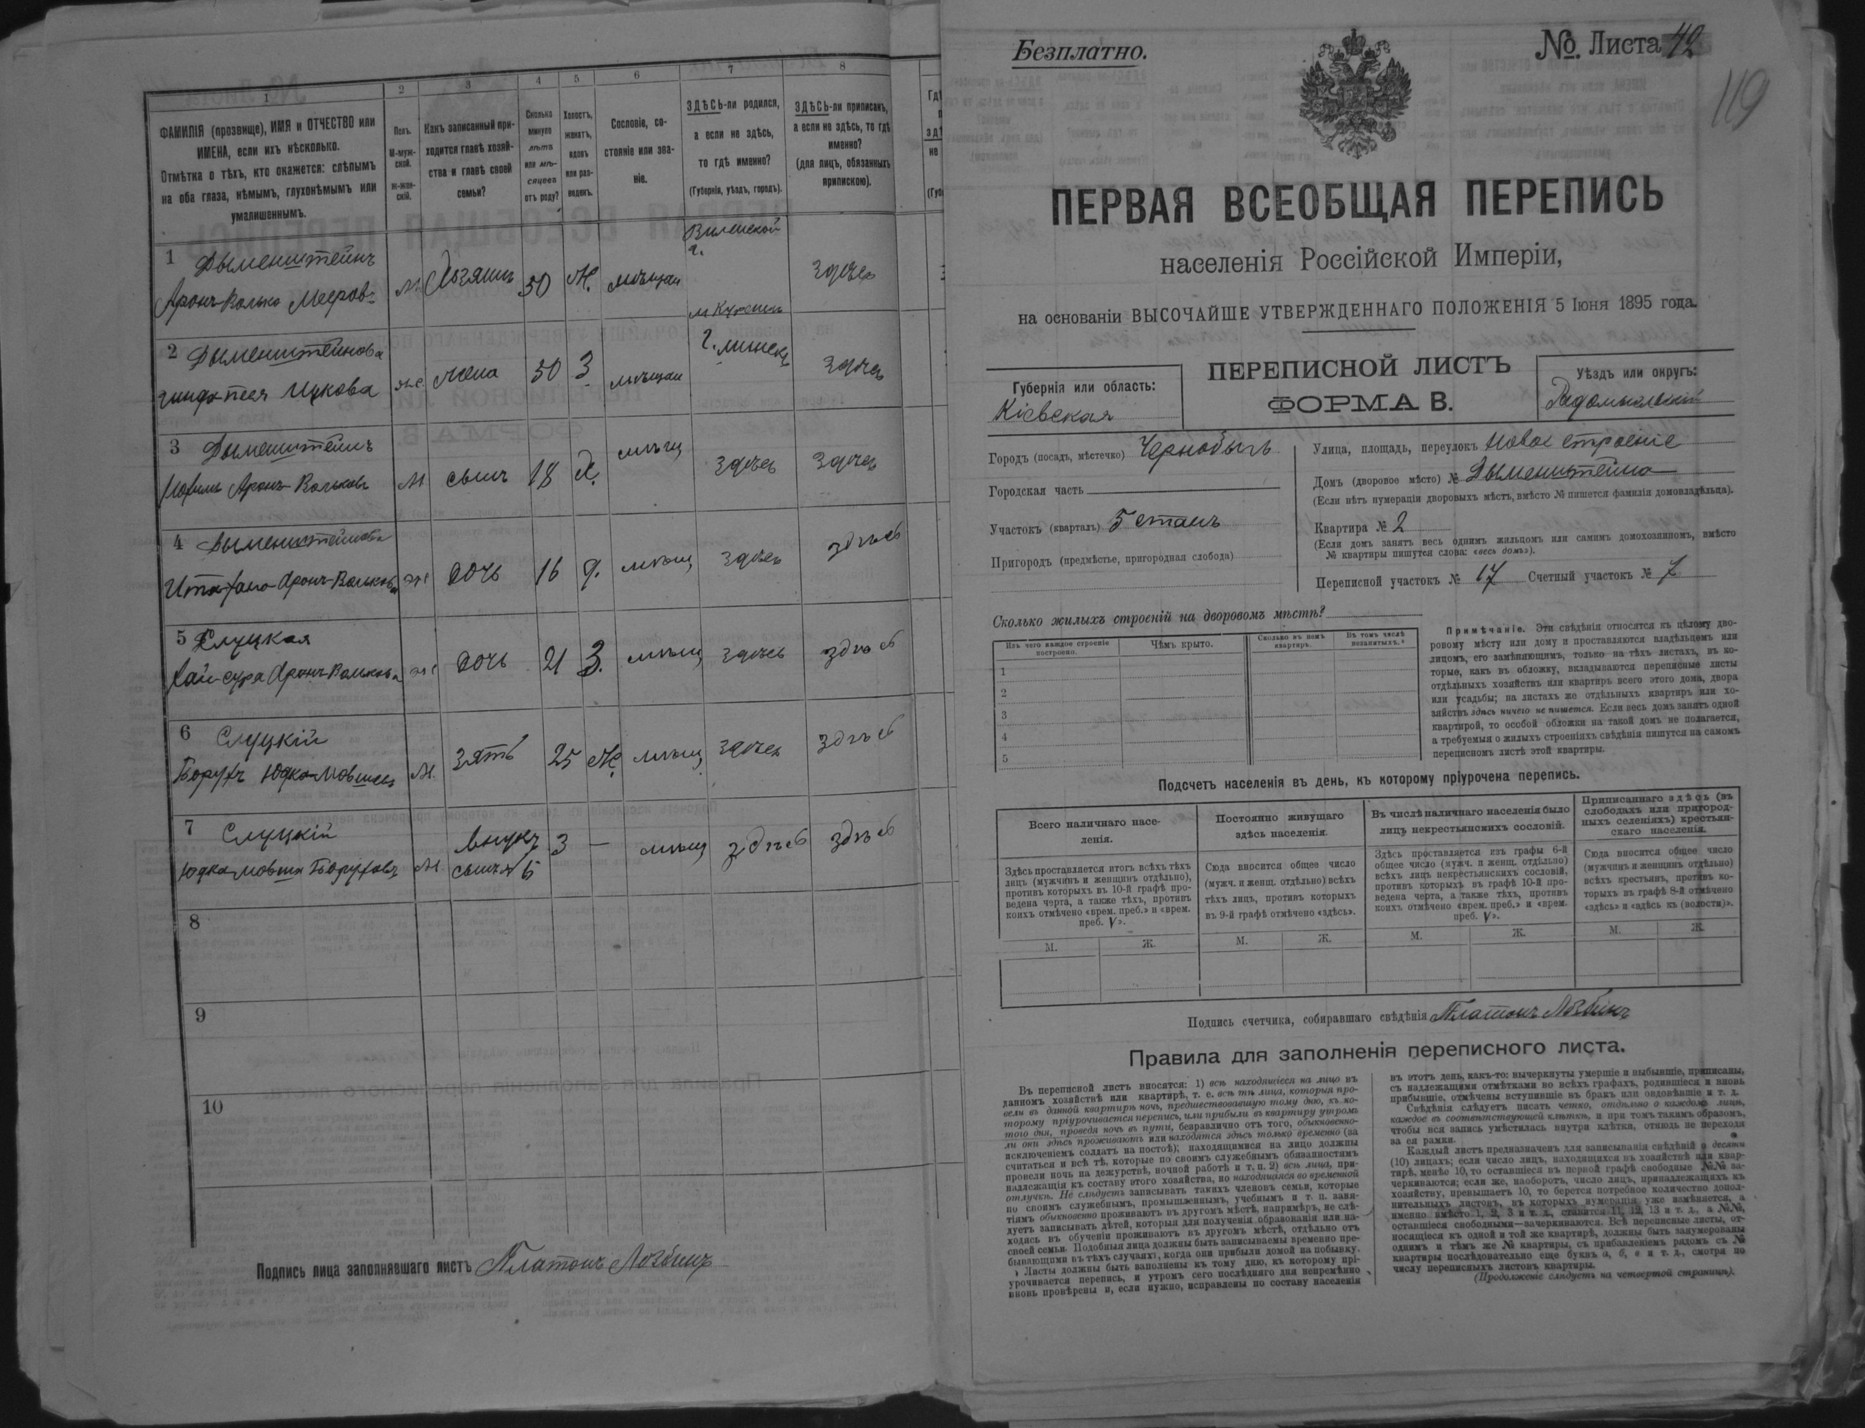 1
2
3
4
5
6
7
8
ФАМИЛІЯ (прозвище), ИМЯ и ОТЧЕСТВО или
ИМЕНА, если ихъ нѣсколько.
Отмѣтка о тѣхъ, кто окажется: слѣпымъ
на оба глаза, нѣмымъ, глухонѣмымъ или
умалишеннымъ.
Полъ.
М-муж-
ской.
ж-жен-
скій.
Какъ записанный при-
ходится главѣ хозяй-
ства и главѣ своей
семьи?
Сколько
минуло
лѣтъ
или мѣ-
сяцевъ
отъ роду?
Холостъ,
женатъ,
вдовъ
или раз-
веденъ.
Сословіе, со-
стояніе или зва-
ніе.
ЗДѢСЬ-ли родился,
а если не здѣсь,
то гдѣ именно?
(Губернія, уѣздъ, городъ).
ЗДѢСЬ-ли приписанъ,
а если не здѣсь, то гдѣ
именно?
(для лицъ, обязанныхъ
припискою).
1 Дыменштейнъ
Аронъ-Волько Мееров
м Хозяинъ 50 Ж. мѣщан
Виленской
г.
здѣсь
2 Дыменштейнова
же жена 50 З мѣщан г. Минскъ здѣсь
3 Дыменштейнъ
Аронъ-Вольковъ м сынъ 18 Х. мѣщ здѣсь здѣсь
4 Дыменштейнова
Аронъ-Волькова же дочь 16 д. мѣщ здѣсь здѣсь
5 Слуцкая
Хая-сура Аронъ-Волькова же дочь 21 З. мѣщ здѣсь здѣсь
6 Слуцкій
Борухъ Юдко-Мовшев м. зять 25 Ж. мѣщ здѣсь здѣсь
7 Слуцкій
Юдка-мовша Боруховъ м. внукъ 3 — мѣщ здѣсь здѣсь
сынъ № 6
8
9
10
Подпись лица заполнявшаго листъ Платонъ
Безплатно.
№. Листа 42
119
ПЕРВАЯ ВСЕОБЩАЯ ПЕРЕПИСЬ
населенія Россійской Имперіи,
на основаніи ВЫСОЧАЙШЕ УТВЕРЖДЕННАГО ПОЛОЖЕНІЯ 5 Іюня 1895 года.
Губернія или область:
Кіевская
ПЕРЕПИСНОЙ ЛИСТЪ
ФОРМА В.
Уѣздъ или округъ:
Радомысльскій
Городъ (посадъ, мѣстечко) Чернобыль
Городская часть
Участокъ (кварталъ) 5 станъ
Пригородъ (предмѣстье, пригородная слобода)
Улица, площадь, переулокъ Новое строеніе
Домъ (дворовое мѣсто) № Дыменштейна
(Если нѣтъ нумераціи дворовыхъ мѣстъ, вмѣсто № пишется фамилія домовладѣльца).
Квартира № 2
(Если домъ занятъ весь однимъ жильцомъ или самимъ домохозяиномъ, вмѣсто
№ квартиры пишутся слова: «весь домъ»).
Переписной участокъ № 17 Счетный участокъ № 7
Сколько жилыхъ строеній на дворовомъ мѣстѣ?
Изъ чего каждое строеніе
построено.
Чѣмъ крыто.
Сколько въ немъ
квартиръ.
Въ томъ числѣ
незанятыхъ.
1
2
3
4
5
Примѣчаніе. Эти свѣдѣнія относятся къ цѣлому дво-
ровому мѣсту или дому и проставляются владѣльцемъ или
лицомъ, его замѣняющимъ, только на тѣхъ листахъ, въ ко-
торые, какъ въ обложку, вкладываются переписные листы
отдѣльныхъ хозяйствъ или квартиръ всего этого дома, двора
или усадьбы; на листахъ же отдѣльныхъ квартиръ или хо-
зяйствъ здѣсь ничего не пишется. Если весь домъ занятъ одной
квартирой, то особой обложки на такой домъ не полагается,
а требуемыя о жилыхъ строеніяхъ свѣдѣнія пишутся на самомъ
переписномъ листѣ этой квартиры.
Подсчетъ населенія въ день, къ которому пріурочена перепись.
Всего наличнаго насе-
ленія.
Постоянно живущаго
здѣсь населенія.
Въ числѣ наличнаго населенія было
лицъ некрестьянскихъ сословій.
Приписаннаго здѣсь (въ
слободахъ или пригород-
ныхъ селеніяхъ) крестьян-
скаго населенія.
Здѣсь проставляется итогъ всѣхъ тѣхъ
лицъ (мужчинъ и женщинъ отдѣльно),
противъ которыхъ въ 10-й графѣ про-
ведена черта, а также тѣхъ, противъ
коихъ отмѣчено «врем. преб.» и «врем.
преб. V».
Сюда вносится общее число
(мужч. и женщ. отдѣльно) всѣхъ
тѣхъ лицъ, противъ которыхъ
въ 9-й графѣ отмѣчено «здѣсь».
Здѣсь проставляется изъ графы 6-й
общее число (мужч. и женщ. отдѣльно)
всѣхъ лицъ некрестьянскихъ сословій,
противъ которыхъ въ графѣ 10-й про-
ведена черта, а также тѣхъ, противъ
коихъ отмѣчено «врем. преб.» и «врем.
преб. V».
Сюда вносится общее число
(мужчинъ и женщинъ отдѣльно)
всѣхъ крестьянъ, противъ ко-
торыхъ въ графѣ 8-й отмѣчено
«здѣсь» и «здѣсь къ (волости)».
М. Ж. М. Ж. М. Ж. М. Ж.
Подпись счетчика, собиравшаго свѣдѣнія Платонъ
Правила для заполненія переписного листа.
Въ переписной листъ вносятся: 1) всѣ находящіеся на лицо въ
данномъ хозяйствѣ или квартирѣ, т. е. всѣ тѣ лица, которыя про-
вели въ данной квартирѣ ночь, предшествовавшую тому дню, къ ко-
торому пріурочивается перепись, или прибыли въ квартиру утромъ
того дня, проведя ночь въ пути, безразлично отъ того, обыкновенно-
ли они здѣсь проживаютъ или находятся здѣсь только временно (за
исключеніемъ солдатъ на постоѣ); находящимися на лицо должны
считаться и всѣ тѣ, которые по своимъ служебнымъ обязанностямъ
провели ночь на дежурствѣ, ночной работѣ и т. п. 2) всѣ лица, при-
надлежащія къ составу этого хозяйства, но находящіяся во временной
отлучкѣ. Не слѣдуетъ записывать такихъ членовъ семьи, которые
по своимъ служебнымъ, промышленнымъ, учебнымъ и т. п. заня-
тіямъ обыкновенно проживаютъ въ другомъ мѣстѣ, напримѣръ, не слѣ-
дуетъ записывать дѣтей, которыя для полученія образованія или на-
ходясь въ обученіи проживаютъ въ другомъ мѣстѣ, отдѣльно отъ
своей семьи. Подобныя лица должны быть записываемы временно пре-
бывающими въ тѣхъ случаяхъ, когда они прибыли домой на побывку.
Листы должны быть заполнены къ тому дню, къ которому прі-
урочивается перепись, и утромъ сего послѣдняго дня непремѣнно
вновь провѣрены и, если нужно, исправлены по составу населенія
въ этотъ день, какъ-то: вычеркнуты умершіе и выбывшіе, приписаны,
съ надлежащими отмѣтками во всѣхъ графахъ, родившіеся и вновь
прибывшіе, отмѣчены вступившіе въ бракъ или овдовѣвшіе и т. д.
Свѣдѣнія слѣдуетъ писать четко, отдѣльно о каждомъ лицѣ,
каждое въ соотвѣтствующей клѣткѣ, и при томъ такимъ образомъ,
чтобы вся запись умѣстилась внутри клѣтки, отнюдь не переходя
за ея рамки.
Каждый листъ предназначенъ для записыванія свѣдѣній о десяти
(10) лицахъ; если число лицъ, находящихся въ хозяйствѣ или квар-
тирѣ, менѣе 10, то оставшіеся въ первой графѣ свободные №№ за-
черкиваются; если же, наоборотъ, число лицъ, принадлежащихъ къ
хозяйству, превышаетъ 10, то берется потребное количество допол-
нительныхъ листовъ, въ которыхъ нумерація уже измѣняется, а
именно вмѣсто 1, 2, 3 и т. д., ставится 11, 12, 13 и т. д., а №№,
оставшіеся свободными—зачеркиваются. Всѣ переписные листы, от-
носящіеся къ одной и той же квартирѣ, должны быть занумерованы
однимъ и тѣмъ же № квартиры, съ прибавленіемъ рядомъ съ №
квартиры послѣдовательно еще буквъ а, б, в и т. д., смотря по
числу переписныхъ листовъ квартиры.
(Продолженіе слѣдуетъ на четвертой страницѣ).